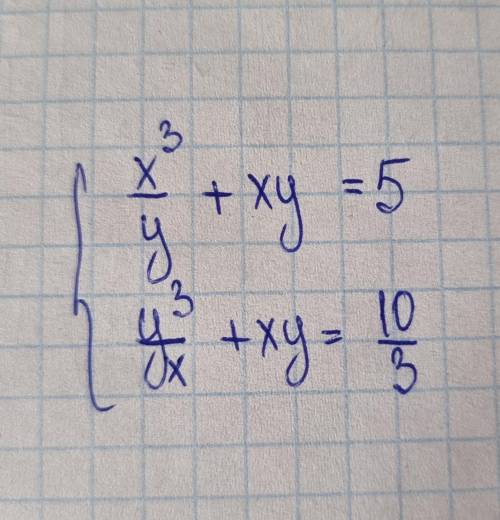 x³/y + xy = 5
y³/x + xy = 10/3